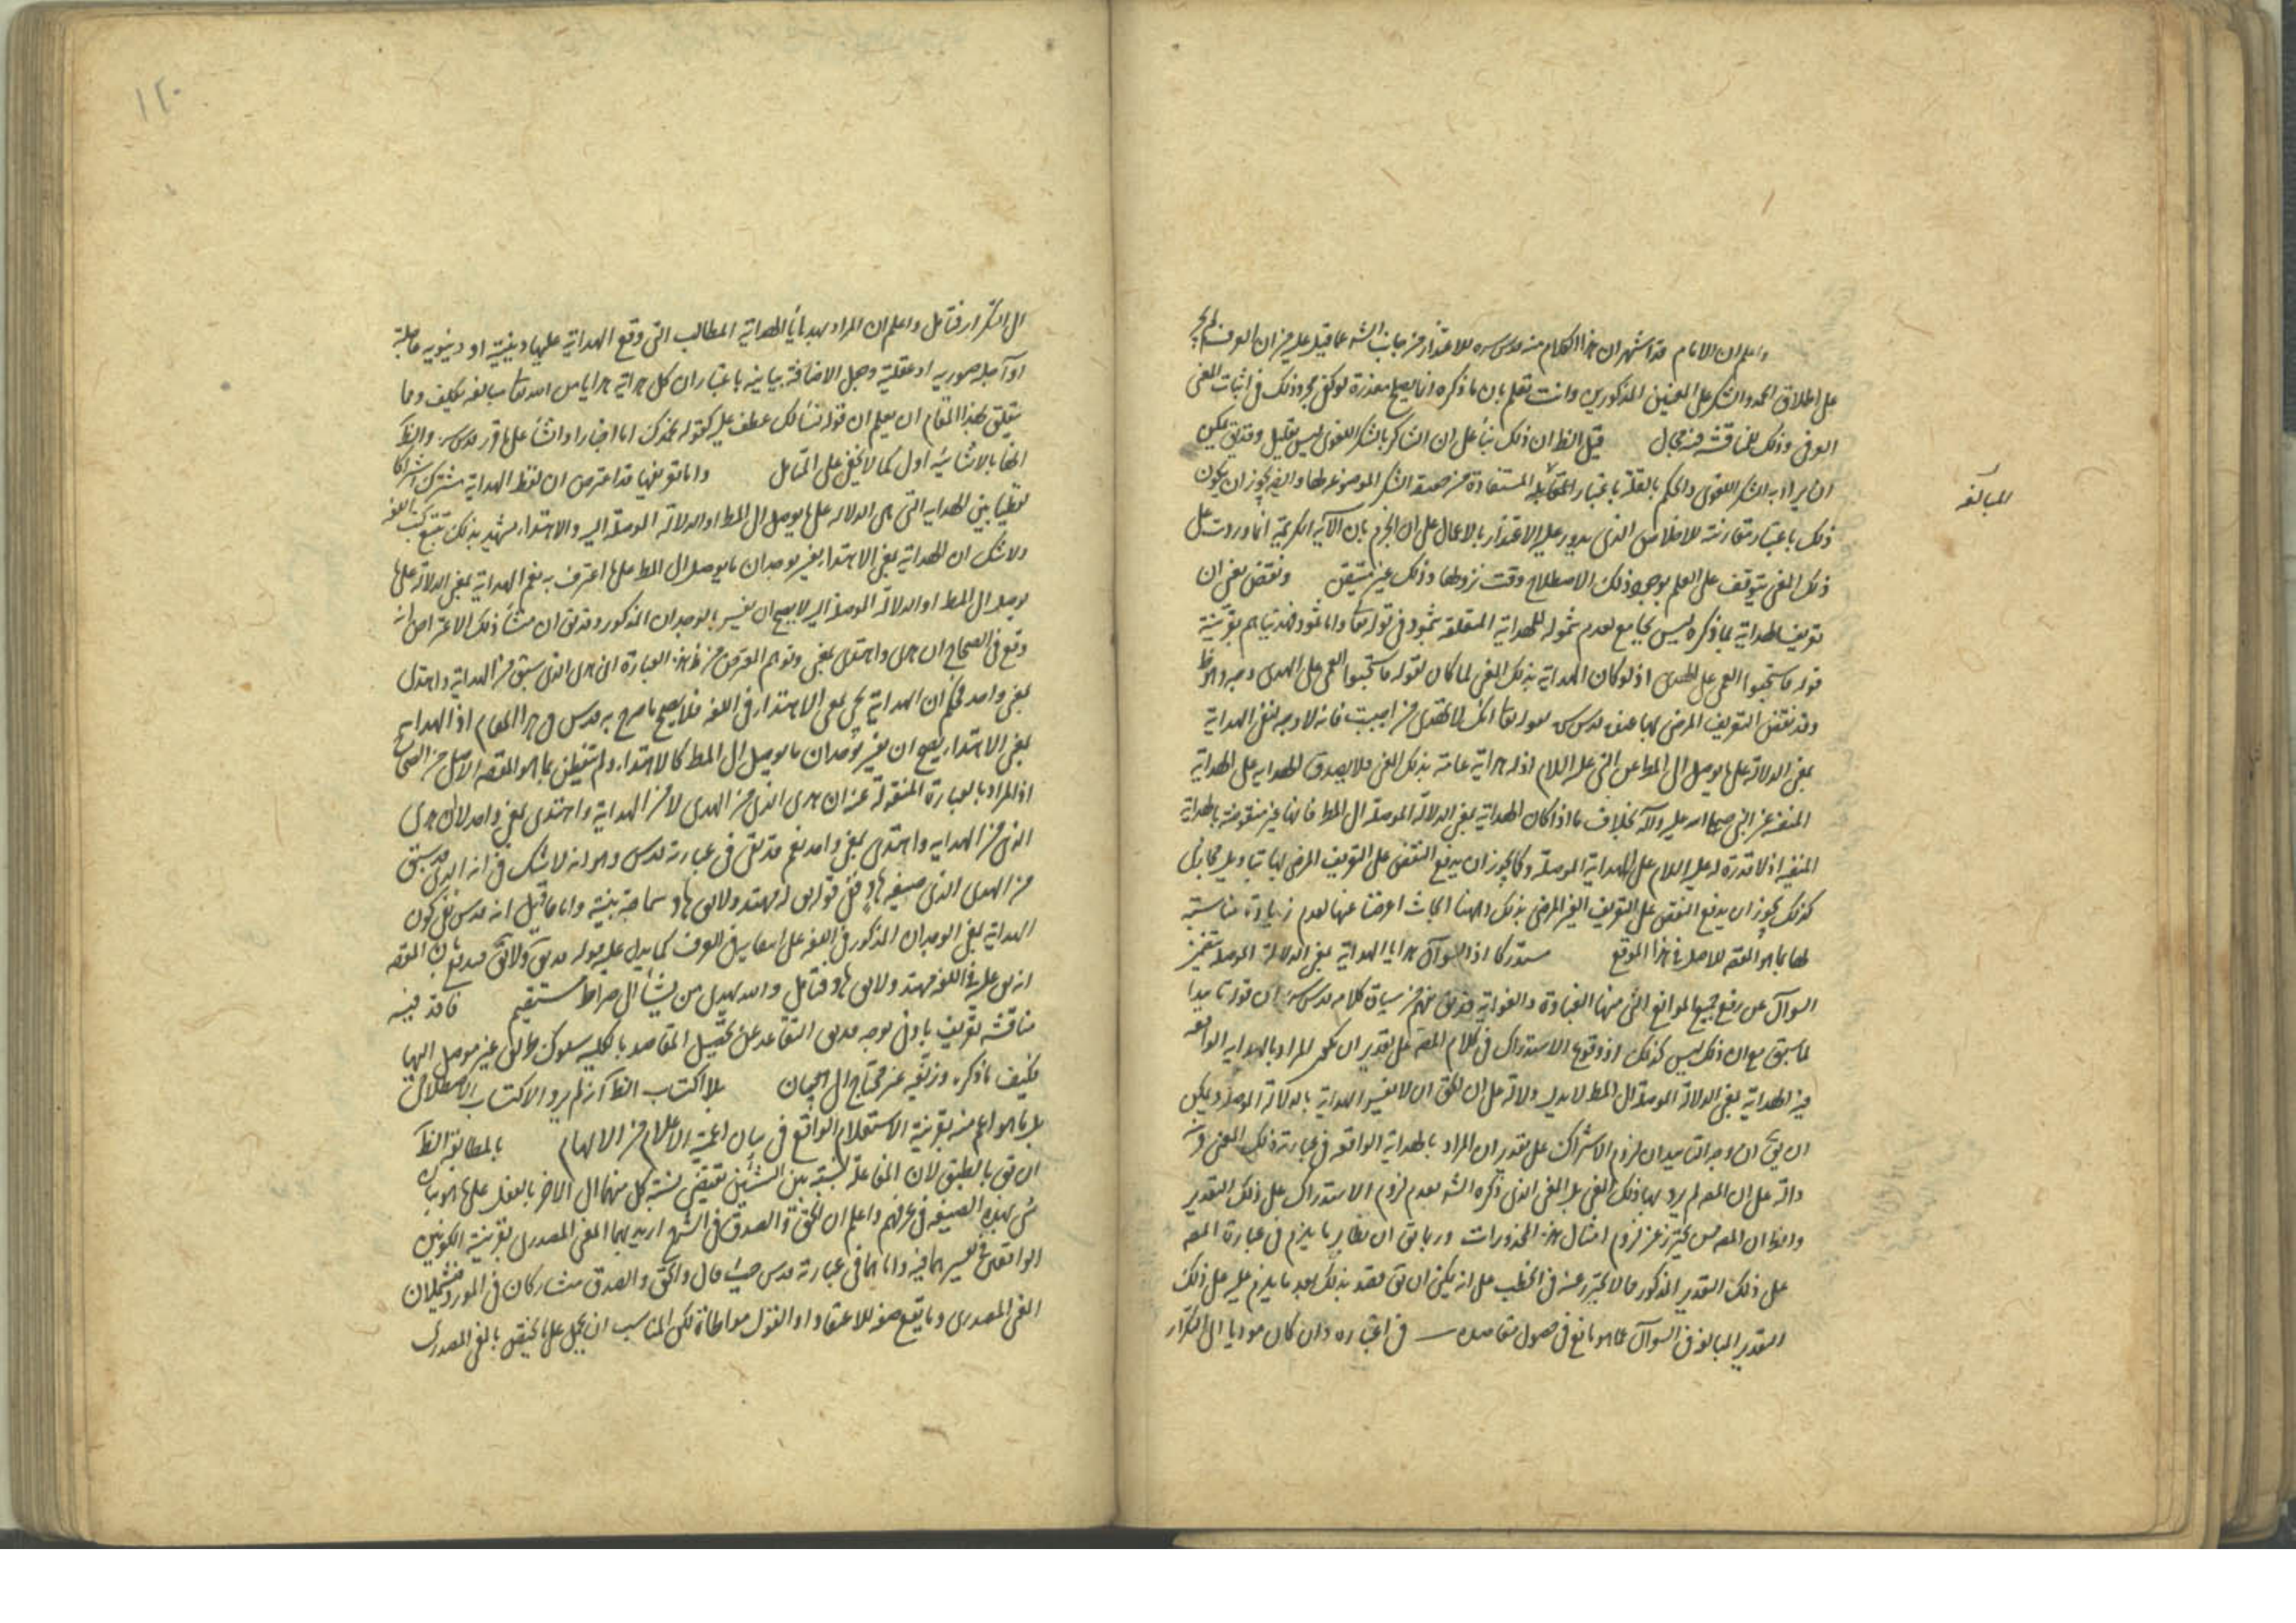 واعلم ان الامام قد اشتهر ان هذا الكلام منه قدس سره للاعتذار من جانب الشه عما قيل عليه من ان العرف لم يجر
على اطلاق الحمد والشكر على المعنيين المذكورين وانت تعلم بان ما ذكره انما يصلح معذرة لو كفى مجرد ذلك فى اثبات المعنى
العرفى وذلك للمناقشة فيه مجال قيل الظ ان ذلك بناء على ان الشاكر بالشكر اللغوى ليس بقليل وقد يق يمكن
ان يراد به الشكر اللغوى والحكم بالقلة باعتبار المبالغة المستفادة من صيغة الشكر الموضوعة لها وايضا يجوز ان يكون
المبالغة
ذلك باعتبار مقارنته للاخلاص الذى يدور عليه الاعتذار بالاعمال على ان الجزم بان الآية الكريمة انما وردت على
ذلك المعنى يتوقف على العلم بوجود ذلك الاصطلاح وقت نزولها وذلك غير متيقن ونقض يعنى ان
تعريف الهداية بما ذكره ليس بجامع لعدم شموله للهداية المتعلقة بثمود فى قوله تعا واما ثمود فهديناهم بقرينة
قوله فاستحبوا العمى على الهدى اذ لو كان الهداية بذلك المعنى لما كان لقوله فاستحبوا العمى على الهدى وجه وهو ظ
وقد نقض التعريف المرضى بها عنده قدس سره بقوله تعا انك لا تهدى من احببت فانه لا وجه لنفى الهداية
بمعنى الدلالة على ما يوصل الى المط عن النبى عليه السلام اذ له هداية عامة بذلك المعنى فلا يصدق الهداية على الهداية
المنفية عن النبى صلى الله عليه وآله بخلاف ما اذا كان الهداية بمعنى الدلالة الموصلة الى المط فانها غير منقوضة بالهداية
المنفية اذ لا قدرة له عليه السلام على الهداية الموصلة وكما يجوز ان يدفع النقض على التعريف المرضى لها بتأويل مجازى
كذلك يجوز ان يدفع النقض على التعريف الغير المرضى بذلك وههنا ابحاث اعرضنا عنها لعدم زيادة مناسبته
لها بما هو المقصد الاصل فى هذا الموقع مستدركا اذ السوآل هدايا الهداية بمعنى الدلالة الموصلة متضمن
السوآل عن رفع جميع الموانع التى منها الغباوة والغواية
لما سبق مع ان ذلك ليس كذلك اذ وقوع الاستدراك فى كلام المصـ على تقدير ان يحمل المراد بالهداية الواقعة
فيه الهداية بمعنى الدلالة الموصلة الى المط لا يدل دلالة على ان الحق ان لا يفسر الهداية بالدلالة الموصلة ويمكن
لزوم الاشتراك على تقدير ان المراد بالهداية الواقعة فى عبارته ذلك المعنى
دالة على ان المصـ لم يرد بها ذلك المعنى بل المعنى الذى ذكره الشه لعدم لزوم الاستدراك على ذلك التقدير
والظ ان المصـ ليس يحترز عن لزوم امثال هذه المحذورات وربما يق ان نظاير ما يلزم فى عبارة المصـ
على ذلك التقدير المذكور مما لا يحترز عنه فى الخطب على انه يمكن ان يق قصد بذلك بعد ما يلزم عليه على ذلك
التقدير المبالغة فى السوآل عما هو مانع فى حصول مقاصده فى اختباره وان كان موديا الى التكرار
١٢٠
الى التكرار فتامل واعلم ان المراد بهدايا الهداية المطالب التى وقع الهداية عليها دينية او دنيوية عاجلة
او آجلة صورية او عقلية وجعل الاضافة بيانية باعتبار ان كل هداية هدايا من الله تعا مبالغة تكليف ومما
يتعلق بهذا المقام ان يعلم ان قوله نسألك عطف على كقوله نحمدك اما اخبارا وانشأ على ما قرر قدس سره والظ
انها بالانشائية اولى كما لا يخفى على المتأمل واما تعريفها قد اعترض ان لفظ الهداية مشترك اشتراكا
لفظيا بين الهداية التى هى الدلالة على ما يوصل الى المط او الدلالة الموصلة اليه والاهتداء يشهد بذلك تتبع كتب اللغة
ولا شك ان الهداية بمعنى الاهتداء يفسر بوجدان ما يوصل الى المط على ما اعترف به نعم الهداية بمعنى الدلالة على ما
يوصل الى المط او الدلالة الموصلة اليه لا يصح ان يفسر بالوجدان المذكور وقد يق ان منشأ ذلك الاعتراض انه
وقع فى الصحاح ان هدى واهتدى بمعنى وتوهم المعترض من ظ هذه العبارة ان هدى الذى يشتق من الهداية واهتدى
بمعنى واحد فحكم ان الهداية تجئ بمعنى الاهتداء فى اللغة فلا يصح ما صرح به قدس سره فى هذا المقام اذ الهداية
بمعنى الاهتداء يصح ان يفسر بوجدان ما يوصل الى المط كالاهتداء ولم يتفطن بما هو المقصد الاصل من الصحاح
اذ المراد بالعبارة المنقولة عنه ان هدى الذى من الهدى لا من الهداية واهتدى بمعنى واحد لا ان هدى
الذى من الهداية واهتدى بمعنى واحد نعم قد يق فى عبارته قدس سره وهو انه لا شك فى انه الذى يشتق
من الهدى الذى صيغة هاد ففى قوله يق له مهتد ولا يق هاد سماجة بينة واما ما قيل انه قدس نفى كون
الهداية بمعنى الوجدان المذكور فى اللغة على
انه يق عليه فى اللغة مهتد ولا يق هاد فتامل والله يهدى من يشأ الى صراط مستقيم فاقد فيه
مناقشة تعريف بادنى توجه قد يق التقاعد عن تحصيل المقاصد بالكلية سلوك طريق غير موصل اليها
فكيف ما ذكره وتزييفه غير محتاج الى البيان بلا اكتساب الظ انه لم يرد الاكتساب الاصطلاحى
بل ما هو اعم منه بقرينة الاستعلام الواقع فى بيان اعمية الاعلام من الالهام بالمطابقة الظ
ان يق بالطبق لان المفاعلة لنسبته بين الشيئين تقتضى نسبة كل منهما الى الاخر بالفعل على ما هو بناء
شئ بهذه الصيغة فى عرفهم واعلم ان الحق والصدق فى الشرح اريد بهما المعنى المصدرى بقرينة الكونين
الواقعين فى تفسيرهما فيه واما هما فى عبارته قدس حيث قال والحق والصدق متشاركان فى المورد فيحتملان
المعنى المصدرى وما يقع صفة للاعتقاد او القول مواطاة لكن المناسب ان يحمل على ما يختص بالمعنى المصدرى